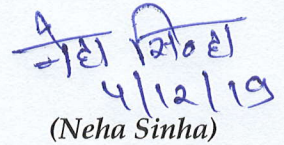 नेहा सिन्हा
4/12/19
(Neha Sinha)